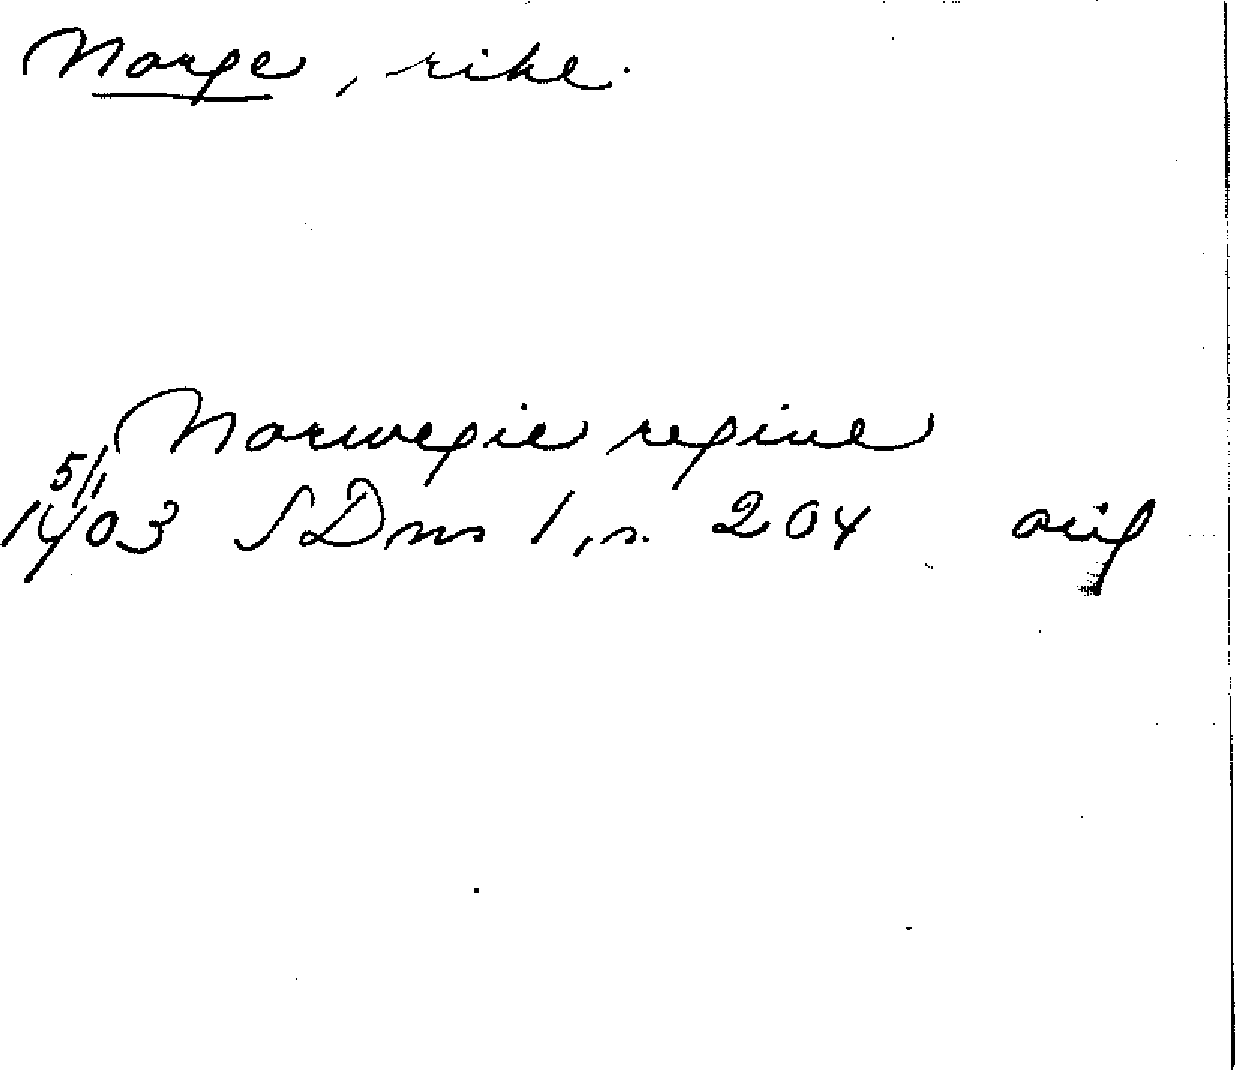 Norge, rike.
Norwegie regine
5/11
1403 SDns 1, s. 204 orig